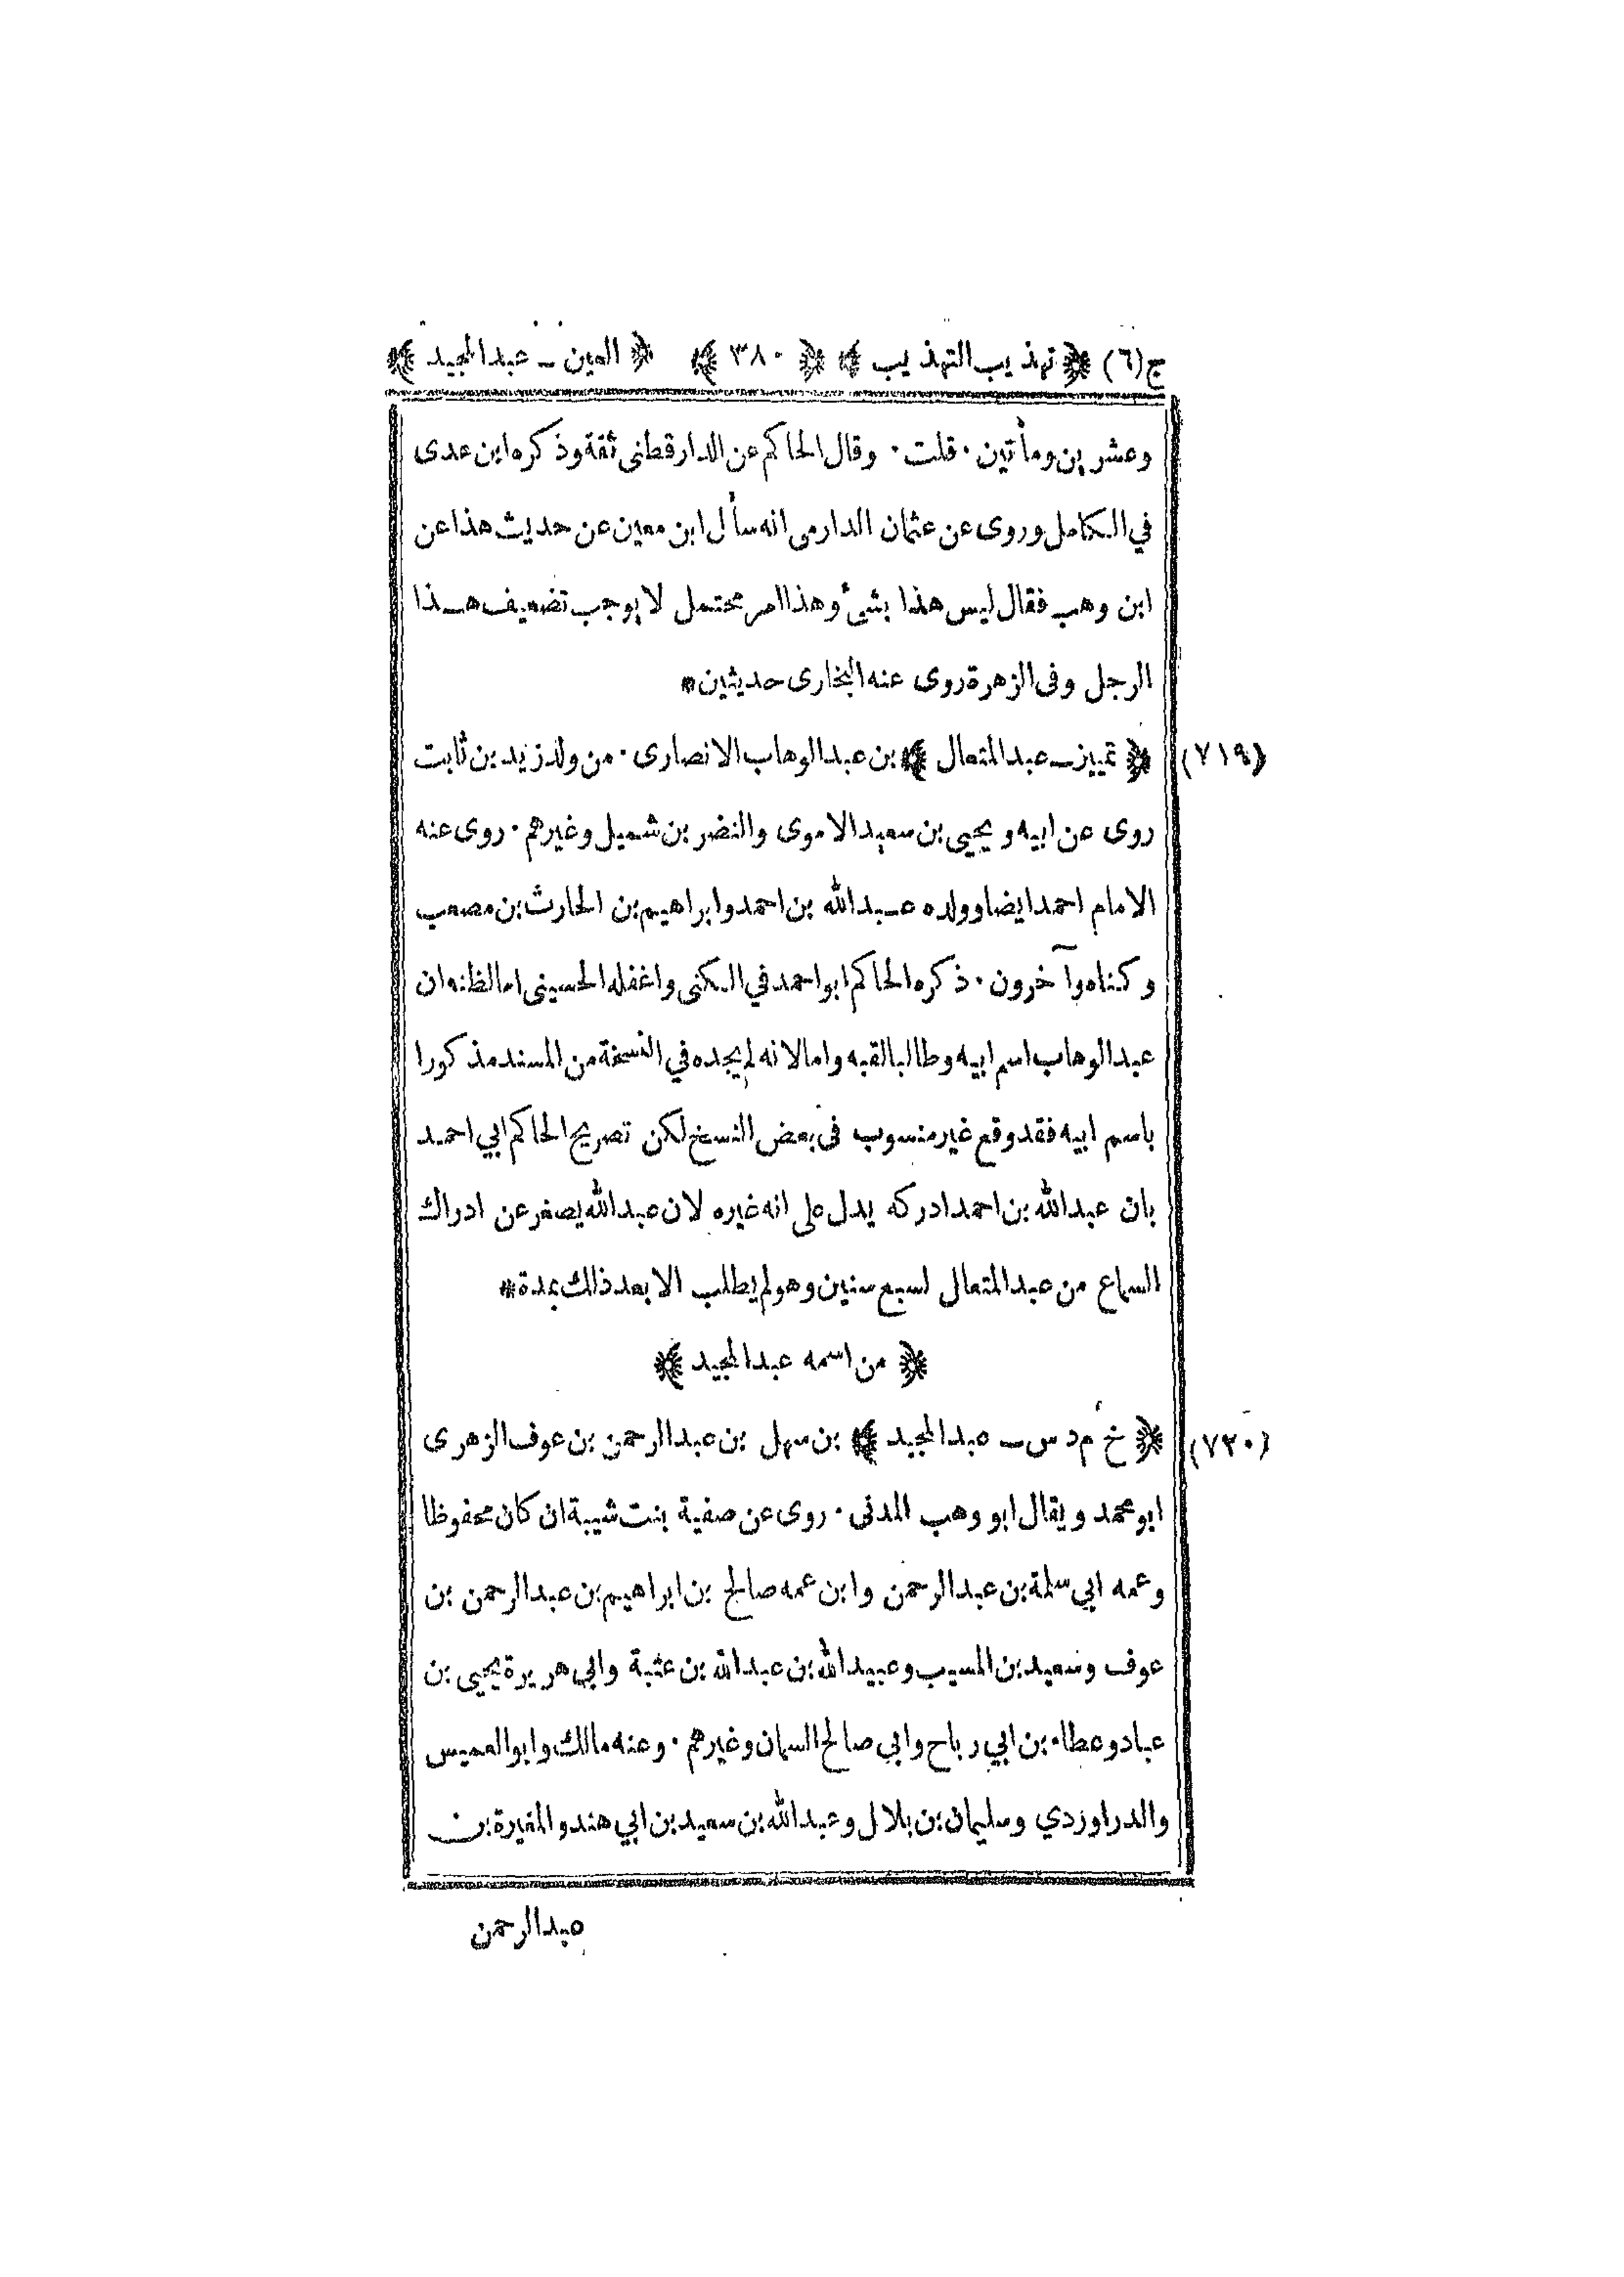 ج(٦) ﴿تهذيب التهذيب﴾ ﴿٣٨٠﴾ ﴿العين ـ عبدالمجيد﴾
وعشرين ومأتين · قلت · وقال الحاكم عن الدارقطنى ثقة وذكره ابن عدى
في الكامل وروى عن عثمان الدارمى انه سأل ابن معين عن حديث هذا عن
ابن وهب فقال ليس هذا بشئ وهذا امر محتمل لا يوجب تضعيف هـذا
الرجل وفى الزهرة روى عنه البخارى حديثين*
(٧١٩) ﴿تمييز ـ عبدالمتعال﴾ بن عبدالوهاب الانصارى · من ولد زيد بن ثابت
روى عن ابيه و يحيى بن سعيد الاموى والنضر بن شميل وغيرهم · روى عنه
الامام احمد ايضا وولده عـبدالله بن احمد وابراهيم بن الحارث بن مصعب
وكناه وآخرون · ذكره الحاكم ابو احمد في الكنى واغفله الحسينى اما لظنه ان
عبدالوهاب اسم ابيه وطالبا لقبه واما لانه لم يجده في النسخة من المسند مذكورا
باسم ابيه فقد وقع غير منسوب فى بعض النسخ لكن تصريح الحاكم ابي احمد
بان عبدالله بن احمد ادركه يدل على انه غيره لان عبدالله يصغر عن ادراك
السماع من عبدالمتعال لسبع سنين وهو لم يطلب الا بعد ذالك بمدة*
﴿من اسمه عبدالمجيد﴾
(٧٢٠) ﴿خ م د س ـ عبدالمجيد﴾ بن سهل بن عبدالرحمن بن عوف الزهرى
ابو محمد و يقال ابو وهب المدنى · روى عن صفية بنت شيبة ان كان محفوظا
وعمه ابي سلمة بن عبدالرحمن وابن عمه صالح بن ابراهيم بن عبدالرحمن بن
عوف وسعيد بن المسيب وعبيدالله بن عبدالله بن عتبة وابى هريرة يحيى بن
عباد وعطاء بن ابي رباح وابي صالح السمان وغيرهم · وعنه مالك وابو العميس
والدراوردي وسليمان بن بلال وعبدالله بن سعيد بن ابي هند والمغيرة بن
عبدالرحمن